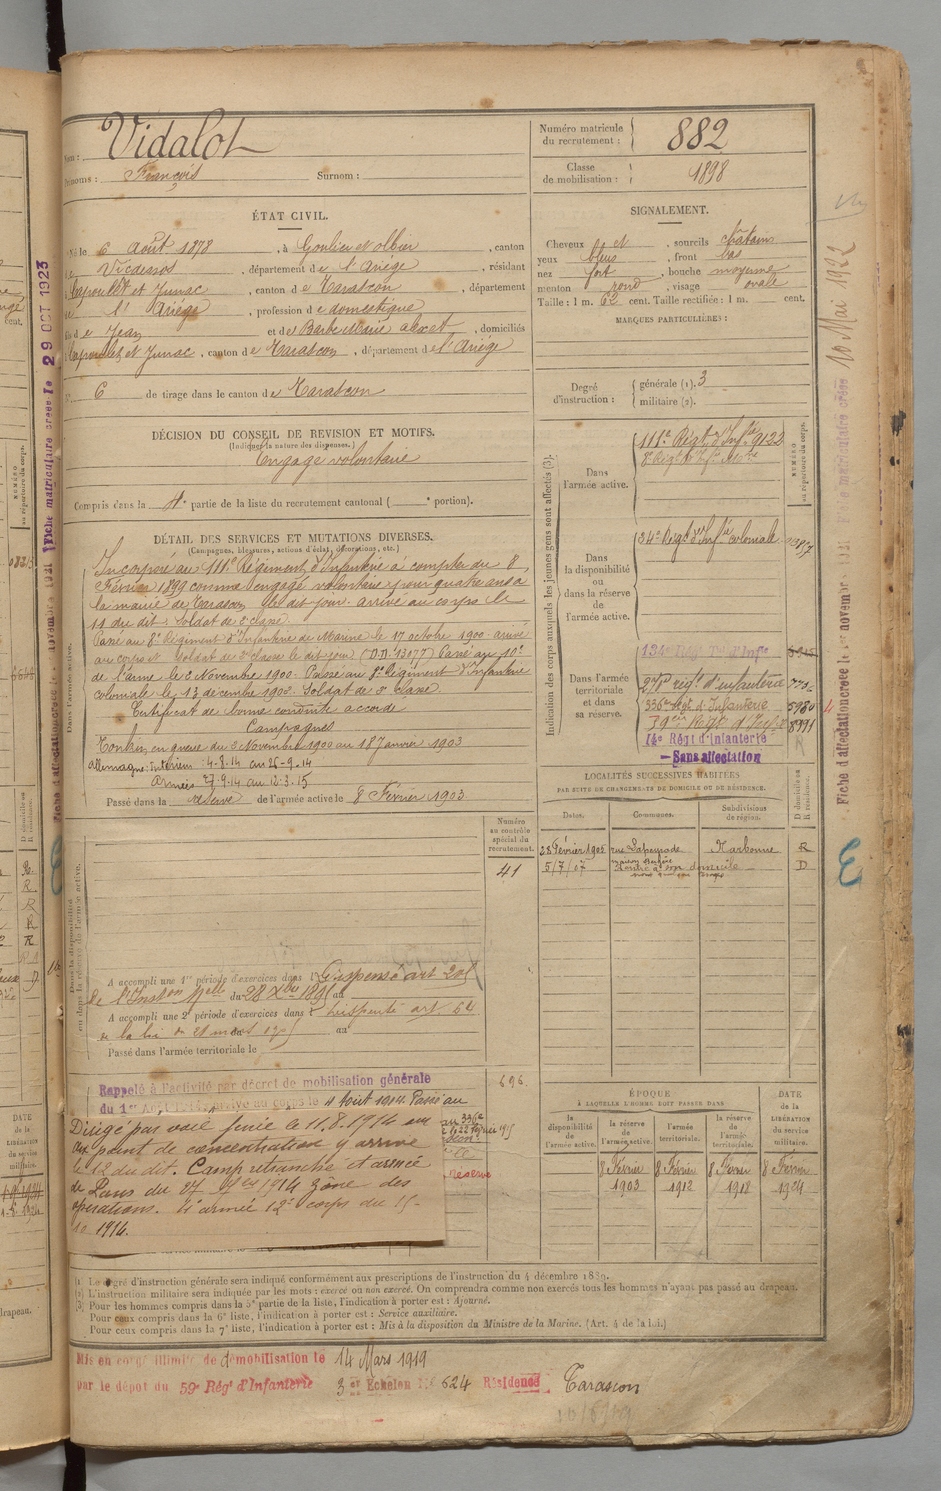 Nom : Vidalot
Prénoms : François Surnom :
Numéro matricule du recrutement : 882
Classe de mobilisation : 1898
ÉTAT CIVIL.
Né le 6 Août 1878, à Goulier et Olbier, canton
de Vicdessos, département de l'Ariège, résidant
à Capoulet et Junac, canton de Tarascon, département
de l'Ariège, profession de domestique
fils de Jean et de Barbe Marie, domiciliés
à Capoulet et Junac, canton de Tarascon, département de l'Ariège
N° 6 de tirage dans le canton de Tarascon
SIGNALEMENT.
Cheveux et sourcils châtains
yeux bleus, front bas
nez fort, bouche moyenne
menton rond, visage ovale
Taille : 1 m. 62 cent. Taille rectifiée : 1 m. cent.
MARQUES PARTICULIÈRES :
Degré d'instruction : générale (1). 3
militaire (2).
DÉCISION DU CONSEIL DE REVISION ET MOTIFS.
(Indiquer la nature des dispenses.)
Engagé volontaire
Compris dans la 4e partie de la liste du recrutement cantonal ( e portion).
DÉTAIL DES SERVICES ET MUTATIONS DIVERSES.
(Campagnes, blessures, actions d'éclat, décorations, etc.)
Incorporé au 111e Régiment d'Infanterie à compter du 8
Février 1899 comme engagé volontaire pour quatre ans à
la mairie de Tarascon le dit jour. arrivé au corps le
11 du dit. Soldat de 2e classe.
Passé au 8e Régiment d'Infanterie de Marine le 17 octobre 1900 arrivé
au corps et soldat de 2e classe le dit jour (D.M. 13077) Passé au 10e
de l'arme le 2 Novembre 1900. Passé au 8e Régiment d'Infanterie
coloniale le 13 décembre 1902. Soldat de 2e classe.
Certificat de bonne conduite accordé
Campagnes
Tonkin, en guerre du 2 Novembre 1900 au 18 Janvier 1903
Allemagne : Intérieur : 4-8-14 au 26-9-14
Armées 27-9-14 au 12-3-15
Passé dans la réserve de l'armée active le 8 Février 1903
Indication des corps auxquels les jeunes gens sont affectés (3).
NUMÉRO au répertoire du corps.
Dans l'armée active.
111e Régt d'Infie 9122
8e Régt d'Infie Marine
Dans la disponibilité ou dans la réserve de l'armée active.
24e Régt d'Infie coloniale
Dans l'armée territoriale et dans sa réserve.
134e Régt Tal d'Infie
271e régt d'infanterie
336e Régt d'Infanterie 5980
59ème Regt d'Infie 8991
14e Régt d'Infanterie
Sans affectation
LOCALITÉS SUCCESSIVES HABITÉES
PAR SUITE DE CHANGEMENTS DE DOMICILE OU DE RÉSIDENCE.
Dates. Communes. Subdivisions de région. D domicile ou R résidence.
28 Février 1905 rue Lapeyrade Narbonne R
5/7/07 rentré à son domicile D
Numéro au contrôle spécial du recrutement.
41
A accompli une 1re période d'exercices dans l Dispensé art 205
de l'Instion Melle du 28 Xbre 1895 au
A accompli une 2e période d'exercices dans l Dispensé art. 64
de la loi du 21 mars 1905 au
Passé dans l'armée territoriale le
696.
Rappelé à l'activité par décret de mobilisation générale
du 1er Août 1914 arrivé au corps le 4 Août 1914. Passé au
Dirigé par voie ferrée le 11.8.1914 sur
un point de concentration y arrivé
le 12 du dit. Camp retranché et armée
de Paris du 27 1914 zône des
opérations. 4e armée 12e corps du 15-
10 1914.
Réserve
ÉPOQUE
À LAQUELLE L'HOMME DOIT PASSER DANS
la disponibilité de l'armée active. la réserve de l'armée active. l'armée territoriale. la réserve de l'armée territoriale.
DATE de la LIBÉRATION du service militaire.
8 Février 1903 8 Février 1912 8 Février 1918 8 Février 1924
(1) Le degré d'instruction générale sera indiqué conformément aux prescriptions de l'instruction du 4 décembre 1889.
(2) L'instruction militaire sera indiquée par les mots : exercé ou non exercé. On comprendra comme non exercés tous les hommes n'ayant pas passé au drapeau.
(3) Pour les hommes compris dans la 5e partie de la liste, l'indication à porter est : Ajourné.
Pour ceux compris dans la 6e liste, l'indication à porter est : Service auxiliaire.
Pour ceux compris dans la 7e liste, l'indication à porter est : Mis à la disposition du Ministre de la Marine. (Art. 4 de la loi.)
Mis en congé illimité de démobilisation le 14 Mars 1919
par le dépôt du 59e Régt d'Infanterie 3er Echelon N° 624 Résidence Tarascon
10 Mai 1922
29 OCT 1923